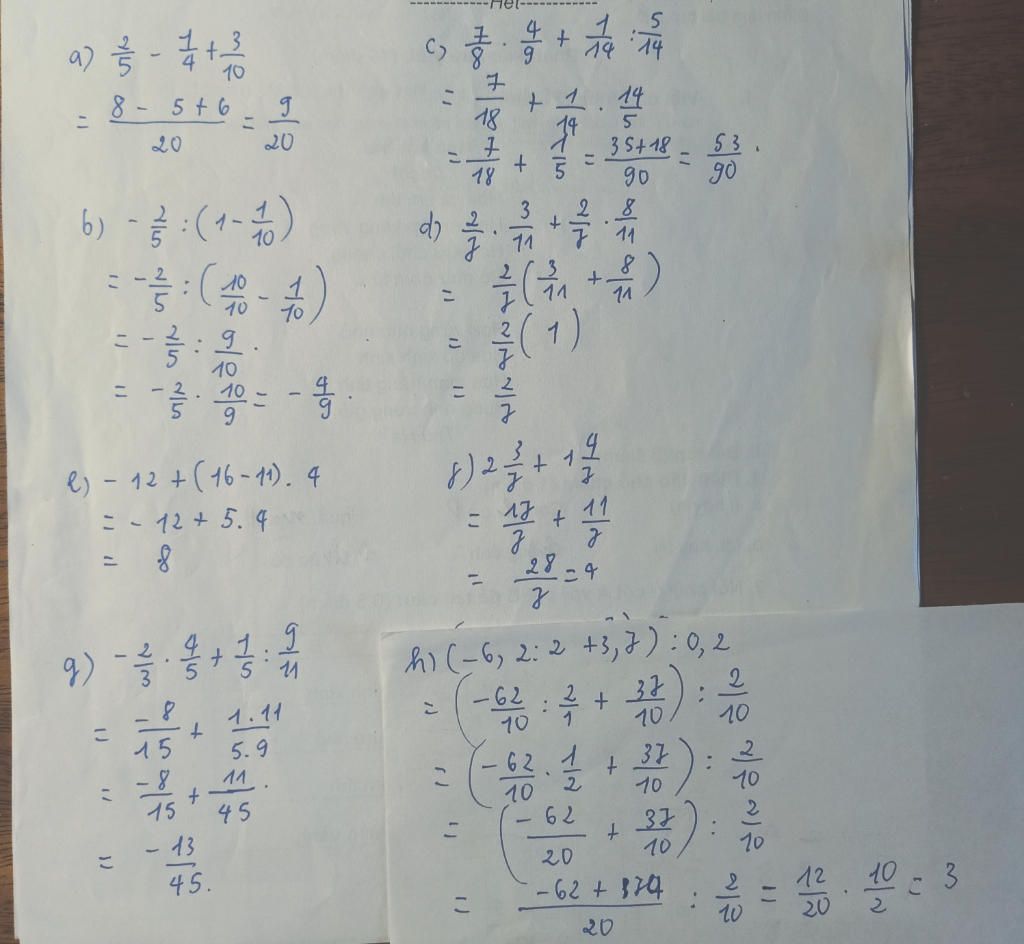 ------------Hết------------
a) 2/5 - 1/4 + 3/10
= (8 - 5 + 6)/20 = 9/20
b) -2/5 : (1 - 1/10)
= -2/5 : (10/10 - 1/10)
= -2/5 : 9/10.
= -2/5 . 10/9 = -4/9.
c) 7/8 . 4/9 + 1/14 : 5/14
= 7/18 + 1/14 . 14/5
= 7/18 + 1/5 = (35+18)/90 = 53/90.
d) 2/7 . 3/11 + 2/7 . 8/11
= 2/7 (3/11 + 8/11)
= 2/7 (1)
= 2/7
e) -12 + (16 - 11). 4
= -12 + 5.4
= 8
f) 2 3/7 + 1 4/7
= 17/7 + 11/7
= 28/7 = 4
g) -2/3 . 4/5 + 1/5 : 9/11
= -8/15 + 1.11/5.9
= -8/15 + 11/45.
= -13/45.
h) (-6,2:2 + 3,7) : 0,2
= (-62/10 : 2/1 + 37/10) : 2/10
= (-62/10 . 1/2 + 37/10) : 2/10
= (-62/20 + 37/10) : 2/10
= (-62 + 74)/20 : 2/10 = 12/20 . 10/2 = 3